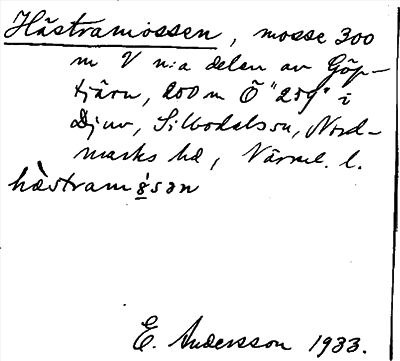 Hästramossen, mosse 300
m V n:a delen av Göp-
tjärn, 200 m Ö "259" i
Djuv, Silbodals sn, Nord-
marks hd, Värml. l.
hæ̀stramósən
E. Andersson 1933.